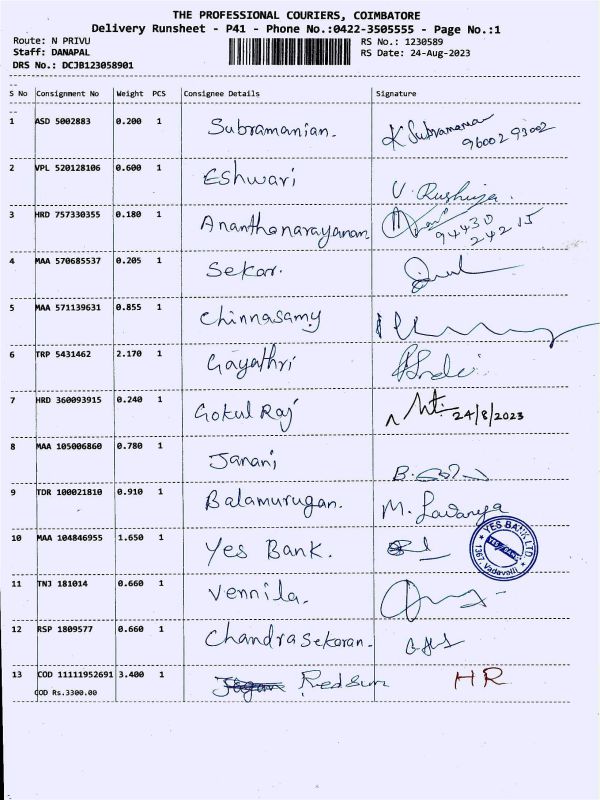 THE PROFESSIONAL COURIERS, COIMBATORE
Delivery Runsheet - P41 - Phone No.:0422-3505555 - Page No.:1
Route: N PRIVU RS No.: 1230589
Staff: DANAPAL RS Date: 24-Aug-2023
DRS No.: DCJB123058901
S No Consignment No Weight PCS Consignee Details Signature
1 ASD 5002883 0.200 1 Subramanian. K Subramanian
96002 93002
2 VPL 520128106 0.600 1 Eshwari V. Rushiya.
3 HRD 757330355 0.180 1 Ananthanarayanan
94430
24215
4 MAA 570685537 0.205 1 Sekar.
5 MAA 571139631 0.855 1 Chinnasamy
6 TRP 5431462 2.170 1 Gayathri
7 HRD 360093915 0.240 1 Gokul Raj 24/8/2023
8 MAA 105006860 0.780 1 Janani B.
9 TDR 100021810 0.910 1 Balamurugan. M. Lavanya
10 MAA 104846955 1.650 1 Yes Bank.
YES BANK LTD
1367, Vadavalli
11 TNJ 181014 0.660 1 Vennila.
12 RSP 1809577 0.660 1 Chandrasekaran.
13 COD 11111952691 3.400 1 Redsun HR
COD Rs.3300.00